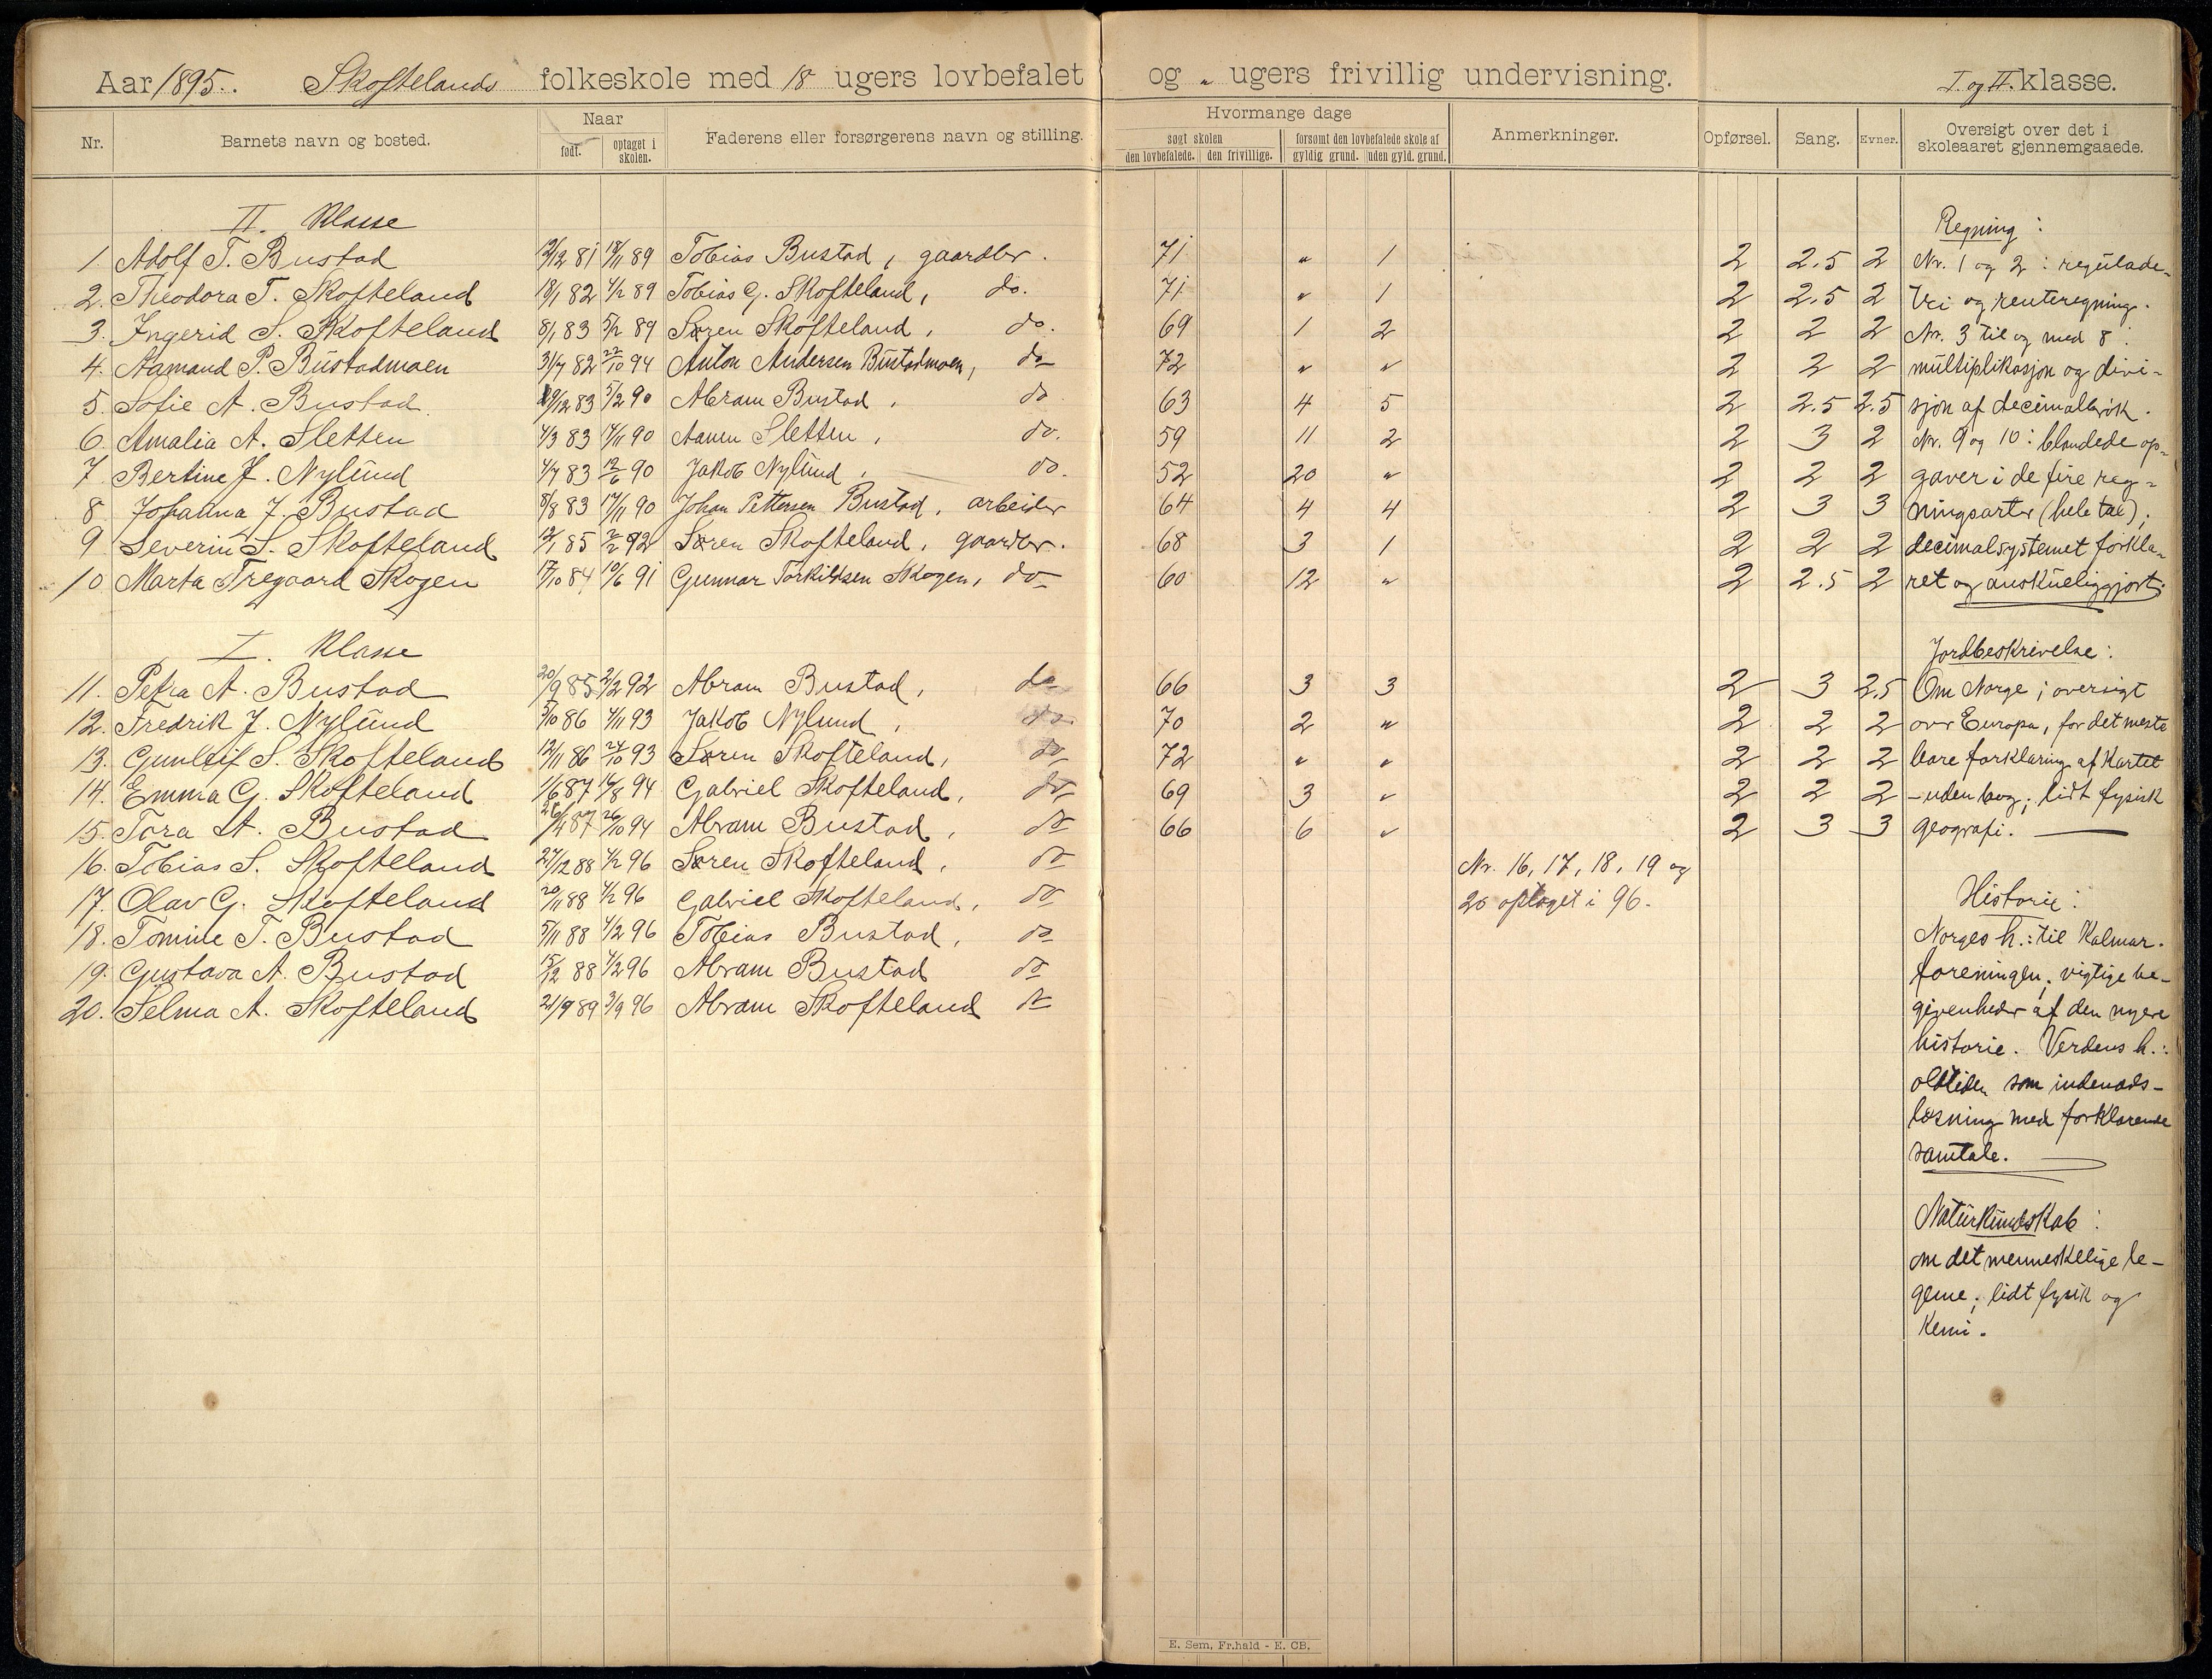 Aar 1895. Skoftelands folkeskole med 18 ugers lovbefalet og „ ugers frivillig undervisning. I. og II. klasse.
Nr. Barnets navn og bosted. Naar født. optaget i skolen. Faderens eller forsørgerens navn og stilling. Hvormange dage søgt skolen den lovbefalede. den frivillige. forsømt den lovbefalede skole af gyldig grund. uden gyld. grund. Anmerkninger. Opførsel. Sang. Evner. Oversigt over det i skoleaaret gjennemgaaede.
II. Klasse Regning:
1. Adolf T. Bustad 12/12 81 18/11 89 Tobias Bustad, gaardbr. 71 „ 1 2 2.5 2 Nr. 1 og 2: regulade-
2. Theodora T. Skofteland 18/1 82 4/2 89 Tobias G. Skofteland, do. 71 „ 1 2 2.5 2 tri og renteregning.
3. Ingerid S. Skofteland 8/1 83 5/2 89 Søren Skofteland, do. 69 1 2 2 2 2 Nr. 3 til og med 8:
4. Aamund P. Bustadmoen 31/7 82 22/10 94 Anton Andersen Bustadmoen, do 72 „ „ 2 2 2 multiplikasjon og divi-
5. Sofie A. Bustad 19/12 83 5/2 90 Abram Bustad, do 63 4 5 2 2.5 2.5 sjon af decimalbrøk.
6. Amalia A. Sletten 4/3 83 17/11 90 Aanen Sletten, do. 59 11 2 2 3 2 Nr. 9 og 10: blandede op-
7 Bertine J. Nylund 4/7 83 12/6 90 Jakob Nylund, do. 52 20 „ 2 2 2 gaver i de fire reg-
8 Johanna J. Bustad 8/8 83 17/11 90 Johan Pettersen Bustad, arbeider 64 4 4 2 3 3 ningsarter (hele tal);
9 Severin S. Skofteland 12/1 85 2/2 92 Søren Skofteland, gaardbr. 68 3 1 2 2 2 decimalsystemet forkla-
10 Marta Tregaard Skogen 17/10 84 10/6 91 Gunnar Torkildsen Skogen, do 60 12 „ 2 2.5 2 ret og anskueliggjort.
I. Klasse Jordbeskrivelse:
11. Petra A. Bustad 20/9 85 2/2 92 Abram Bustad, do 66 3 3 2 3 2.5 Om Norge; oversigt
12. Fredrik J. Nylund 5/10 86 4/11 93 Jakob Nylund, do. 70 2 „ 2 2 2 over Europa, for det meste
13. Gunleif S. Skofteland 12/11 86 24/10 93 Søren Skofteland, do 72 „ „ 2 2 2 bare forklaring af kartet
14. Emma G. Skofteland 1/6 87 14/8 94 Gabriel Skofteland, do 69 3 „ 2 2 2 - uden bog; lidt fysisk
15. Tora A. Bustad 26/4 87 26/10 94 Abram Bustad, do 66 6 „ 2 3 3 geografi.
16. Tobias S. Skofteland 27/12 88 4/2 96 Søren Skofteland, do Nr. 16, 17, 18, 19 og
17. Olav G. Skofteland 20/11 88 4/2 96 Gabriel Skofteland, do 20 optaget i 96. Historie:
18. Tomine T. Bustad 5/11 88 4/2 96 Tobias Bustad, do Norges h.: til Kalmar-
19. Gustava A. Bustad 15/12 88 4/2 96 Abram Bustad do foreningen; vigtige be-
20. Selma A. Skofteland 21/9 89 3/9 96 Abram Skofteland do givenheder af den nyere
historie. Verdens h.:
oldtiden som indenads-
læsning med forklarende
samtale.
Naturkundskab:
om det menneskelige le-
geme; lidt fysik og
kemi.
E. Sem, Fr.hald - E. CB.